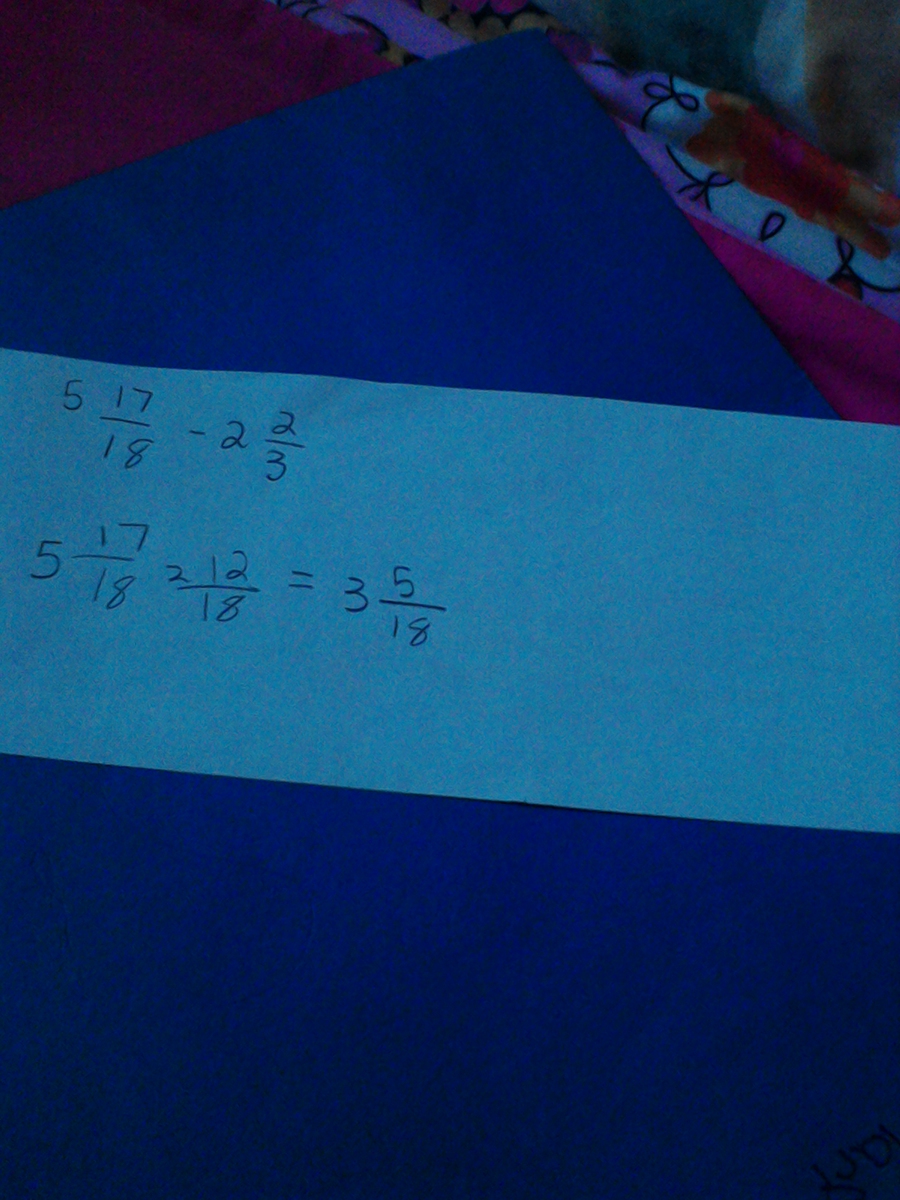 5 17/18 - 2 2/3
5 17/18 2 12/18 = 3 5/18